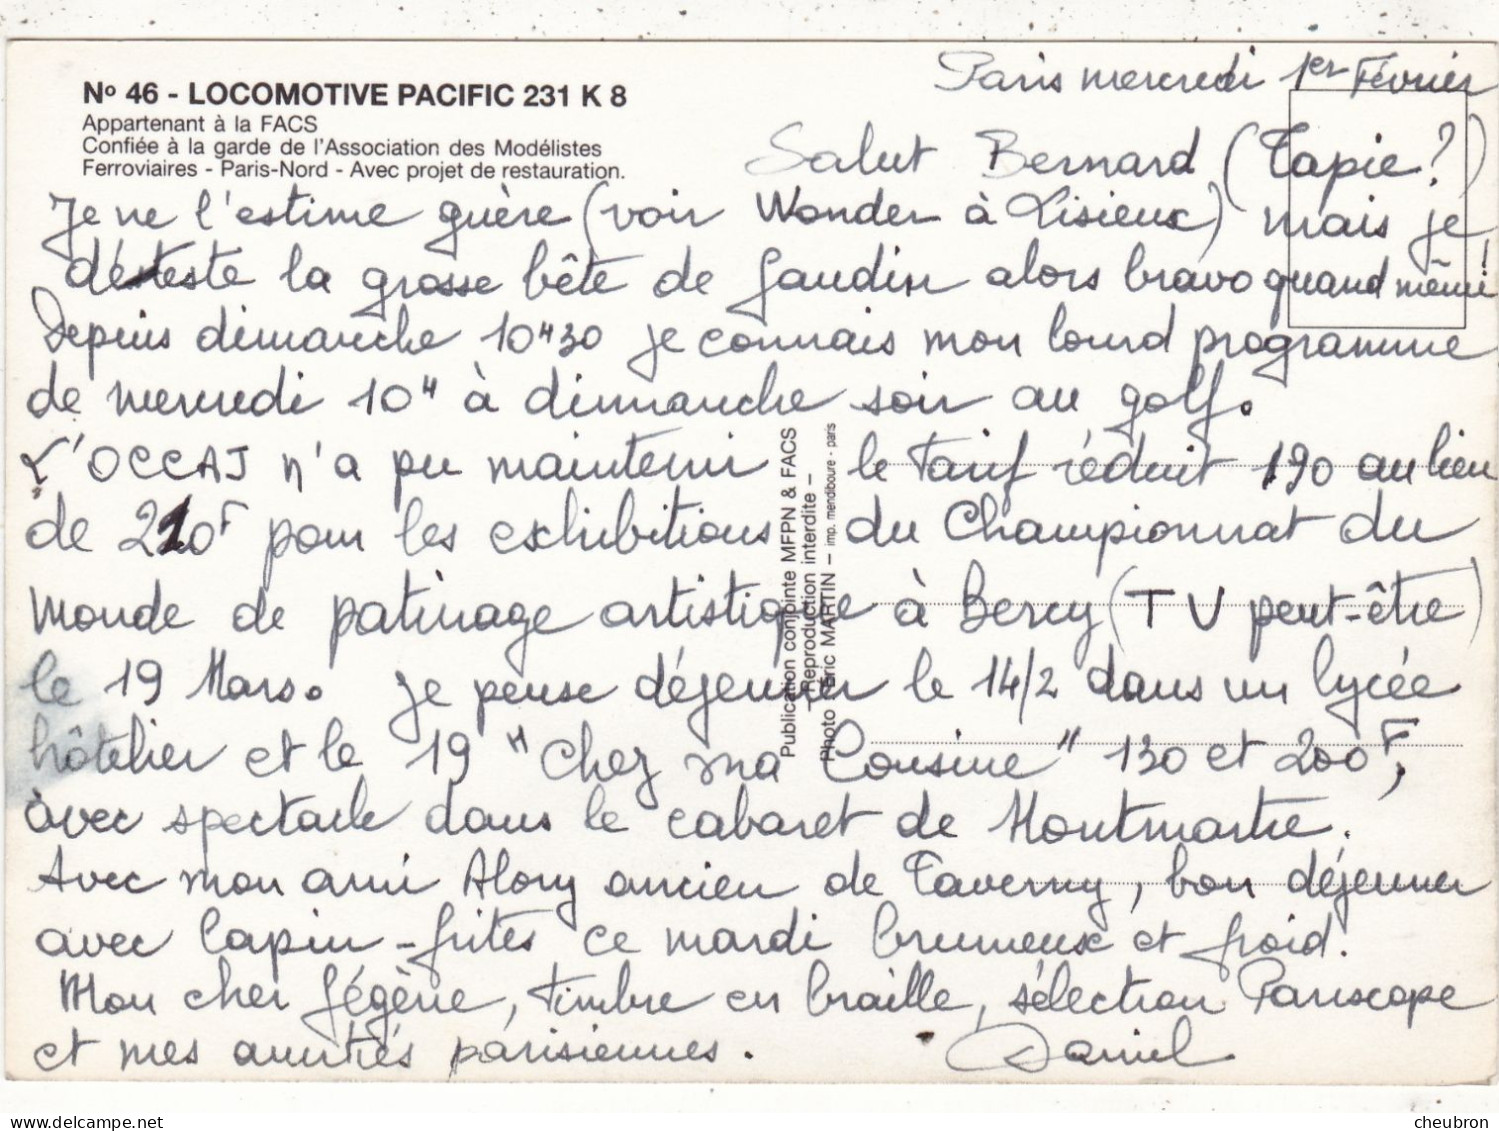 Paris mercredi 1er Février
N° 46 - LOCOMOTIVE PACIFIC 231 K 8
Appartenant à la FACS
Confiée à la garde de l'Association des Modélistes
Ferroviaires - Paris-Nord - Avec projet de restauration.
Salut Bernard (Tapie?)
Je ne l'estime guère (voir Wonder à Lisieux) mais je
déteste la grosse bête de Gaudin alors bravo quand même!
Depuis dimanche 10H30 je connais mon lourd programme
de mercredi 10H à dimanche soir au golf.
L'OCCAJ n'a pu maintenir le tarif réduit 190 au lieu
de 210F pour les exhibitions du Championnat du
Monde de patinage artistique à Bercy (TV peut-être)
le 19 Mars. Je pense déjeuner le 14/2 dans un lycée
hôtelier et le 19 "Chez ma Cousine" 130 et 200F,
avec spectacle dans le cabaret de Montmartre.
Avec mon ami Alory ancien de Taverny, bon déjeuner
avec lapin-frites ce mardi brumeux et froid.
Mon cher Gégène, timbre en braille, sélection Pariscope
et mes amitiés parisiennes. Daniel
Publication conjointe MFPN & FACS
- Reproduction interdite -
Photo Eric MARTIN - imp. mendiboure - paris
www.delcampe.net
cheubron